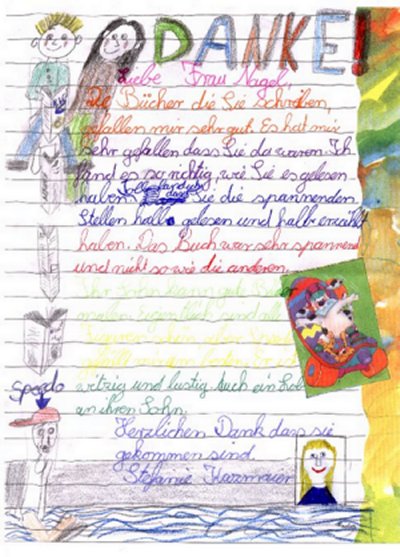 DANKE!
Liebe Frau Nagel,
Die Bücher die Sie Schreiben,
gefallen mir sehr gut. Es hat mir
Sehr gefallen dass Sie da waren. Ich
fand es so richtig, wie Sie es gelesen
haben. Toll fand ich dass Sie die spannenden
Stellen halb gelesen und halb erzählt
haben. Das Buch war sehr spannend
und nicht so wie die anderen.
Ihr Sohn kann gute Bilder
malen. Eigentlich sind all
gefällt mir am besten. Er
speedo
witzig und lustig. Auch ein Lob
an ihren Sohn.
Herzlichen Dank dass sie
gekommen sind
Stefanie